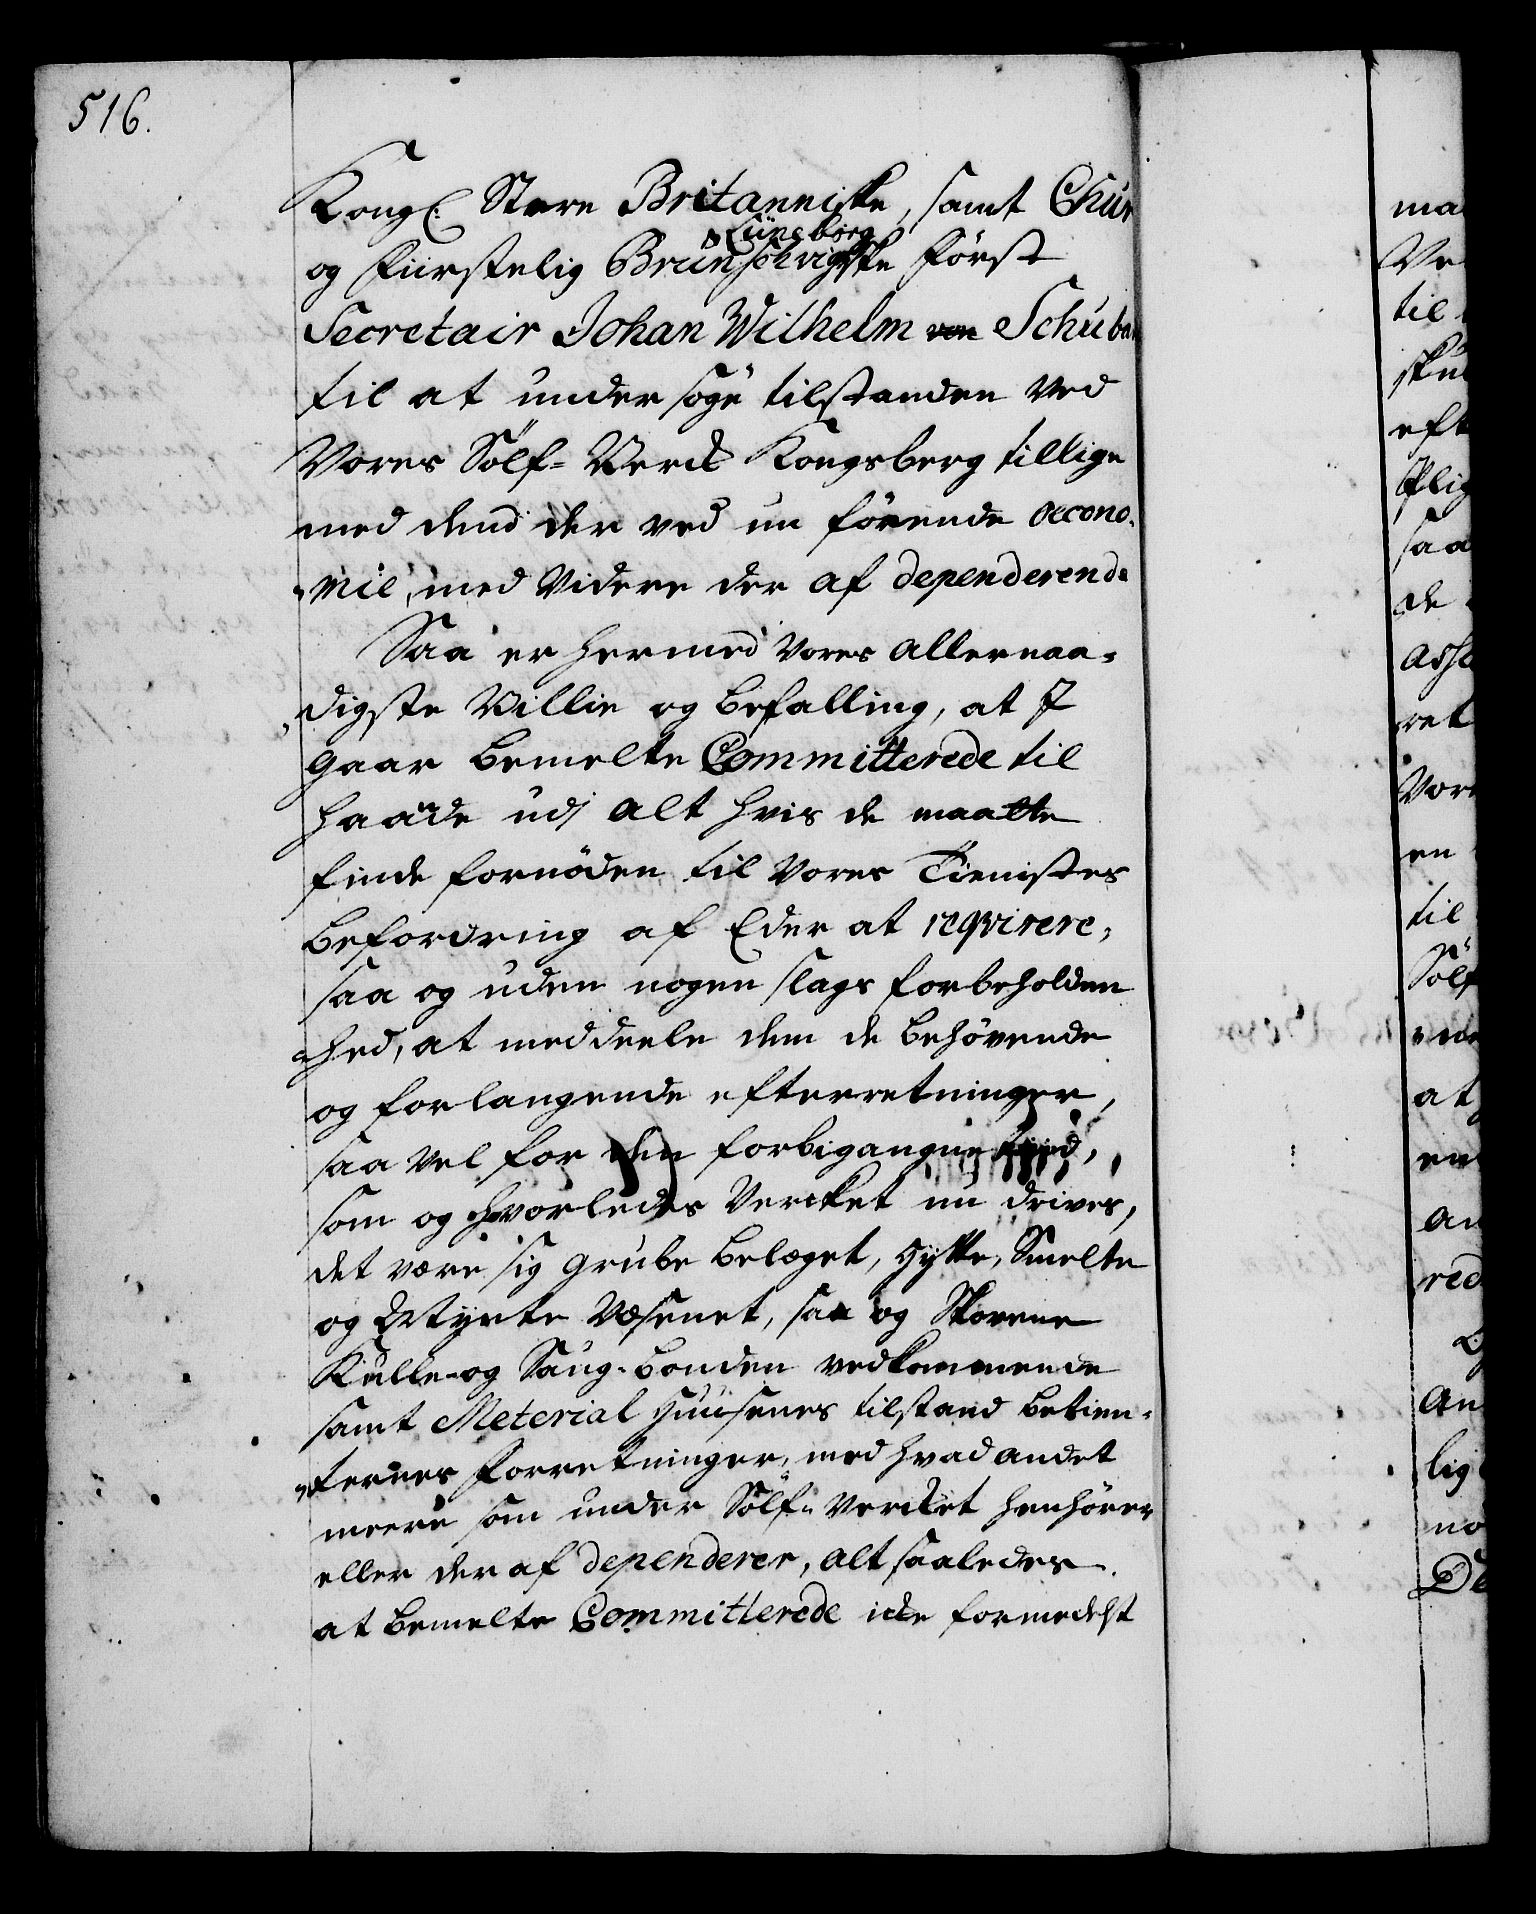 516.
Kongl: Store Britanniske, samt Chur
og Fürstelig Brünschvigske först
Lüneborg
Secretair Johan Wilhelm von Schuba
til at under söge tilstanden ved
Vores Sölf-Verck Kongsberg tillige
med dend der ved nu förende oecono-
mie, med videre der af dependerende
Saa er hermed Vores allernaa-
digste Villie og befalling, at I
gaar bemelte Committerede til
haande udj alt hvis de maatte
finde fornöden til Vores Tienistes
befordring af Eder at reqvirere,
saa og uden nogen slags forbeholden
hed, at meddeele dem de behövende
og forlangende efterretninger,
saa vel for den forbigangne tiid,
som og hvorledes Vercket nu drives,
det være sig grube belæget, Hytte, Smelte
og Mynte Væsenet, saa og Skovene
Kulle- og Saug-bonden vedkommende
samt Meterial Huusenes tilstand betien-
ternes forretninger, med hvad andet
meere som under Sölf-Vercket henhörer
eller der af dependerer, alt saaledes
at bemelte Committerede icke formedelst
ma
Ve
til
sku
eft
Plig
saa
de
Asse
ret
Vore
en
til
Sölf
at
en
an
red
An
lig
no
De